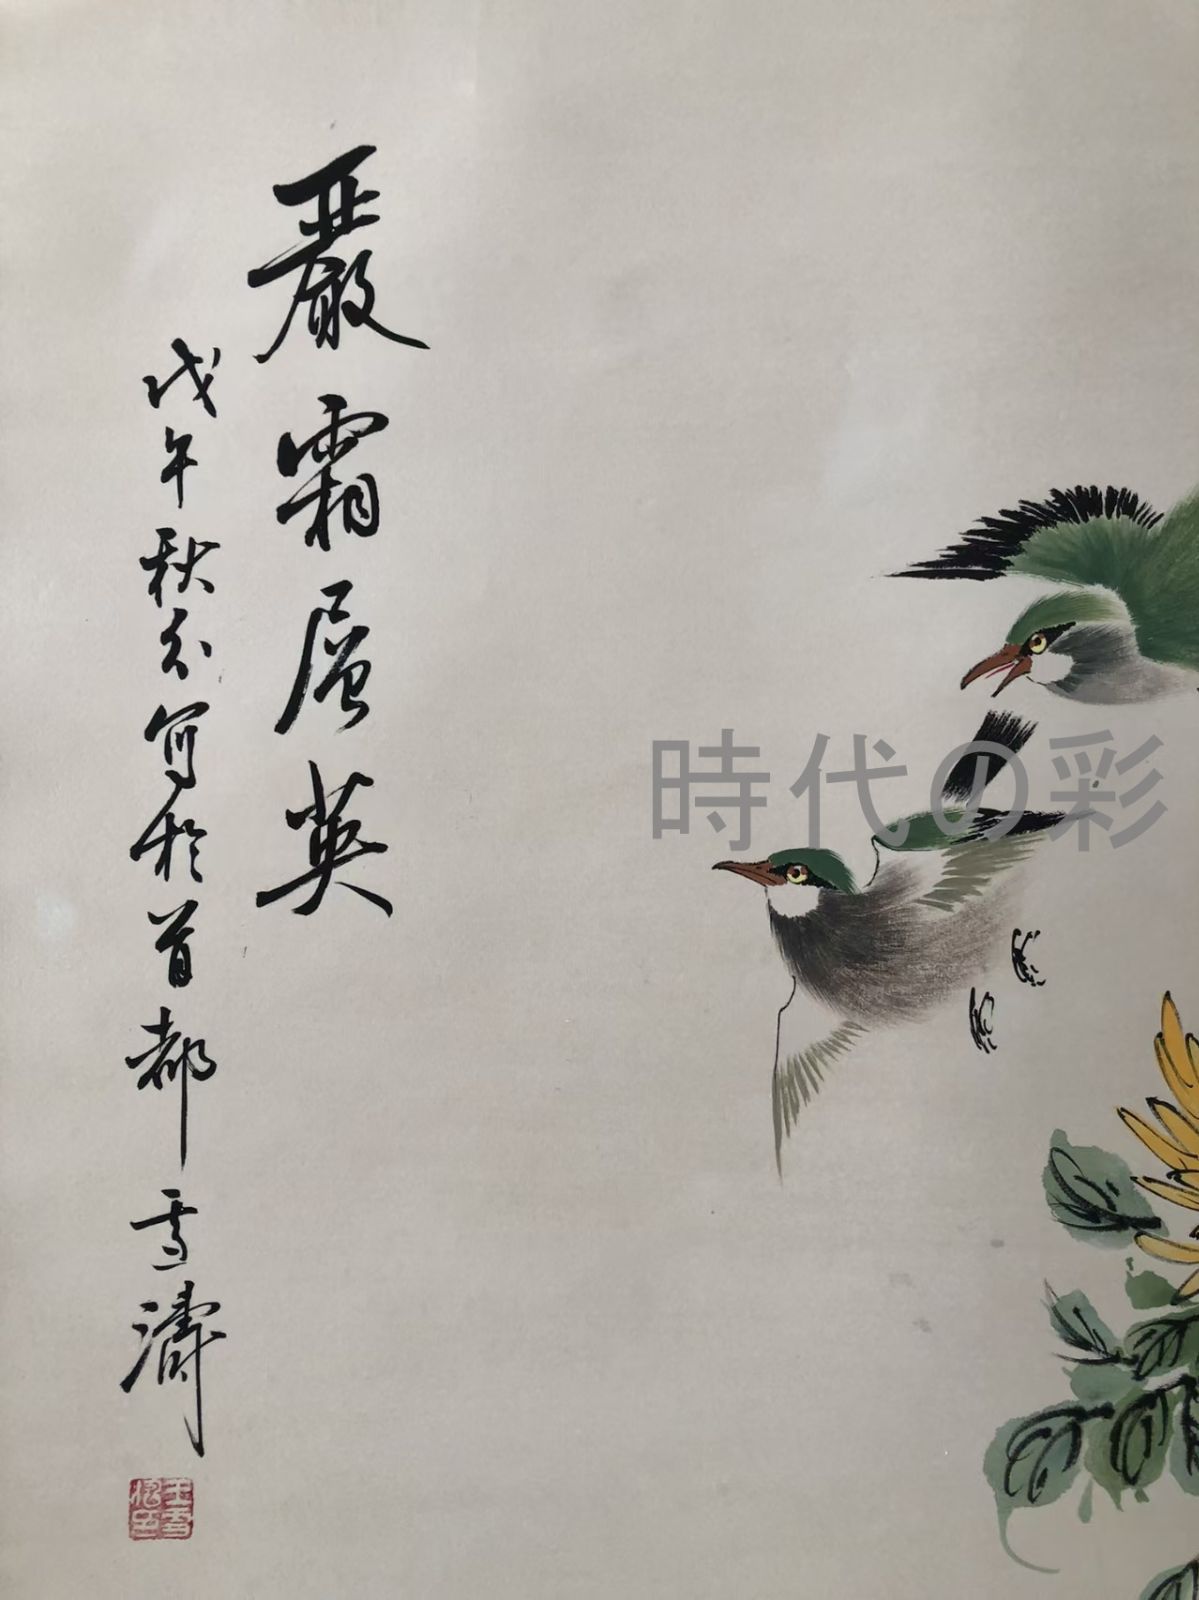 嚴霜層英
戊午秋分写於首都雪濤
王雪濤印
時代の彩